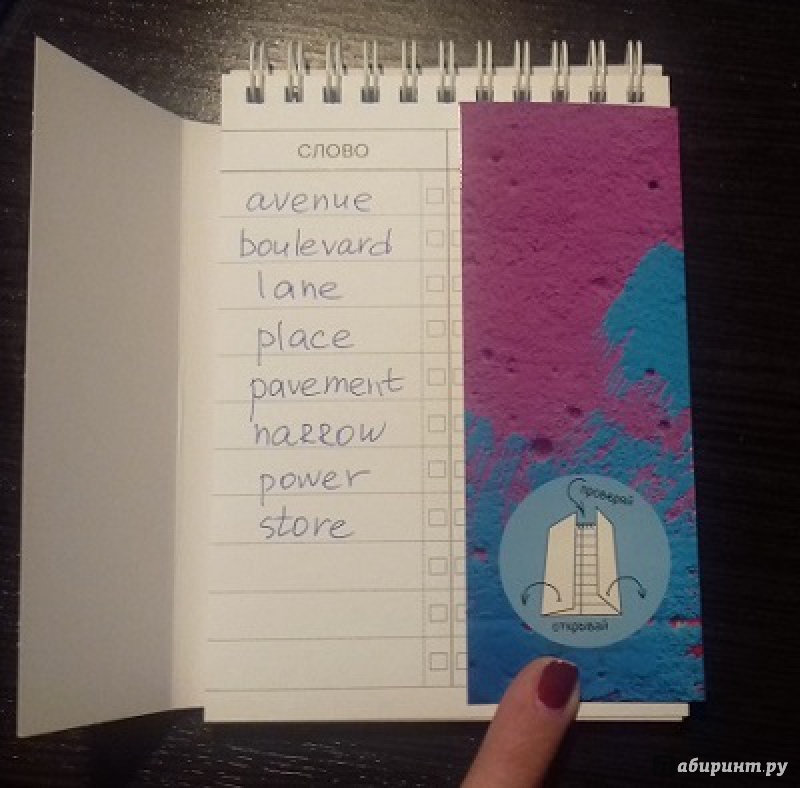 СЛОВО
avenue
boulevard
lane
place
pavement
narrow
power
store
проверяй
открывай
абиринт.ру